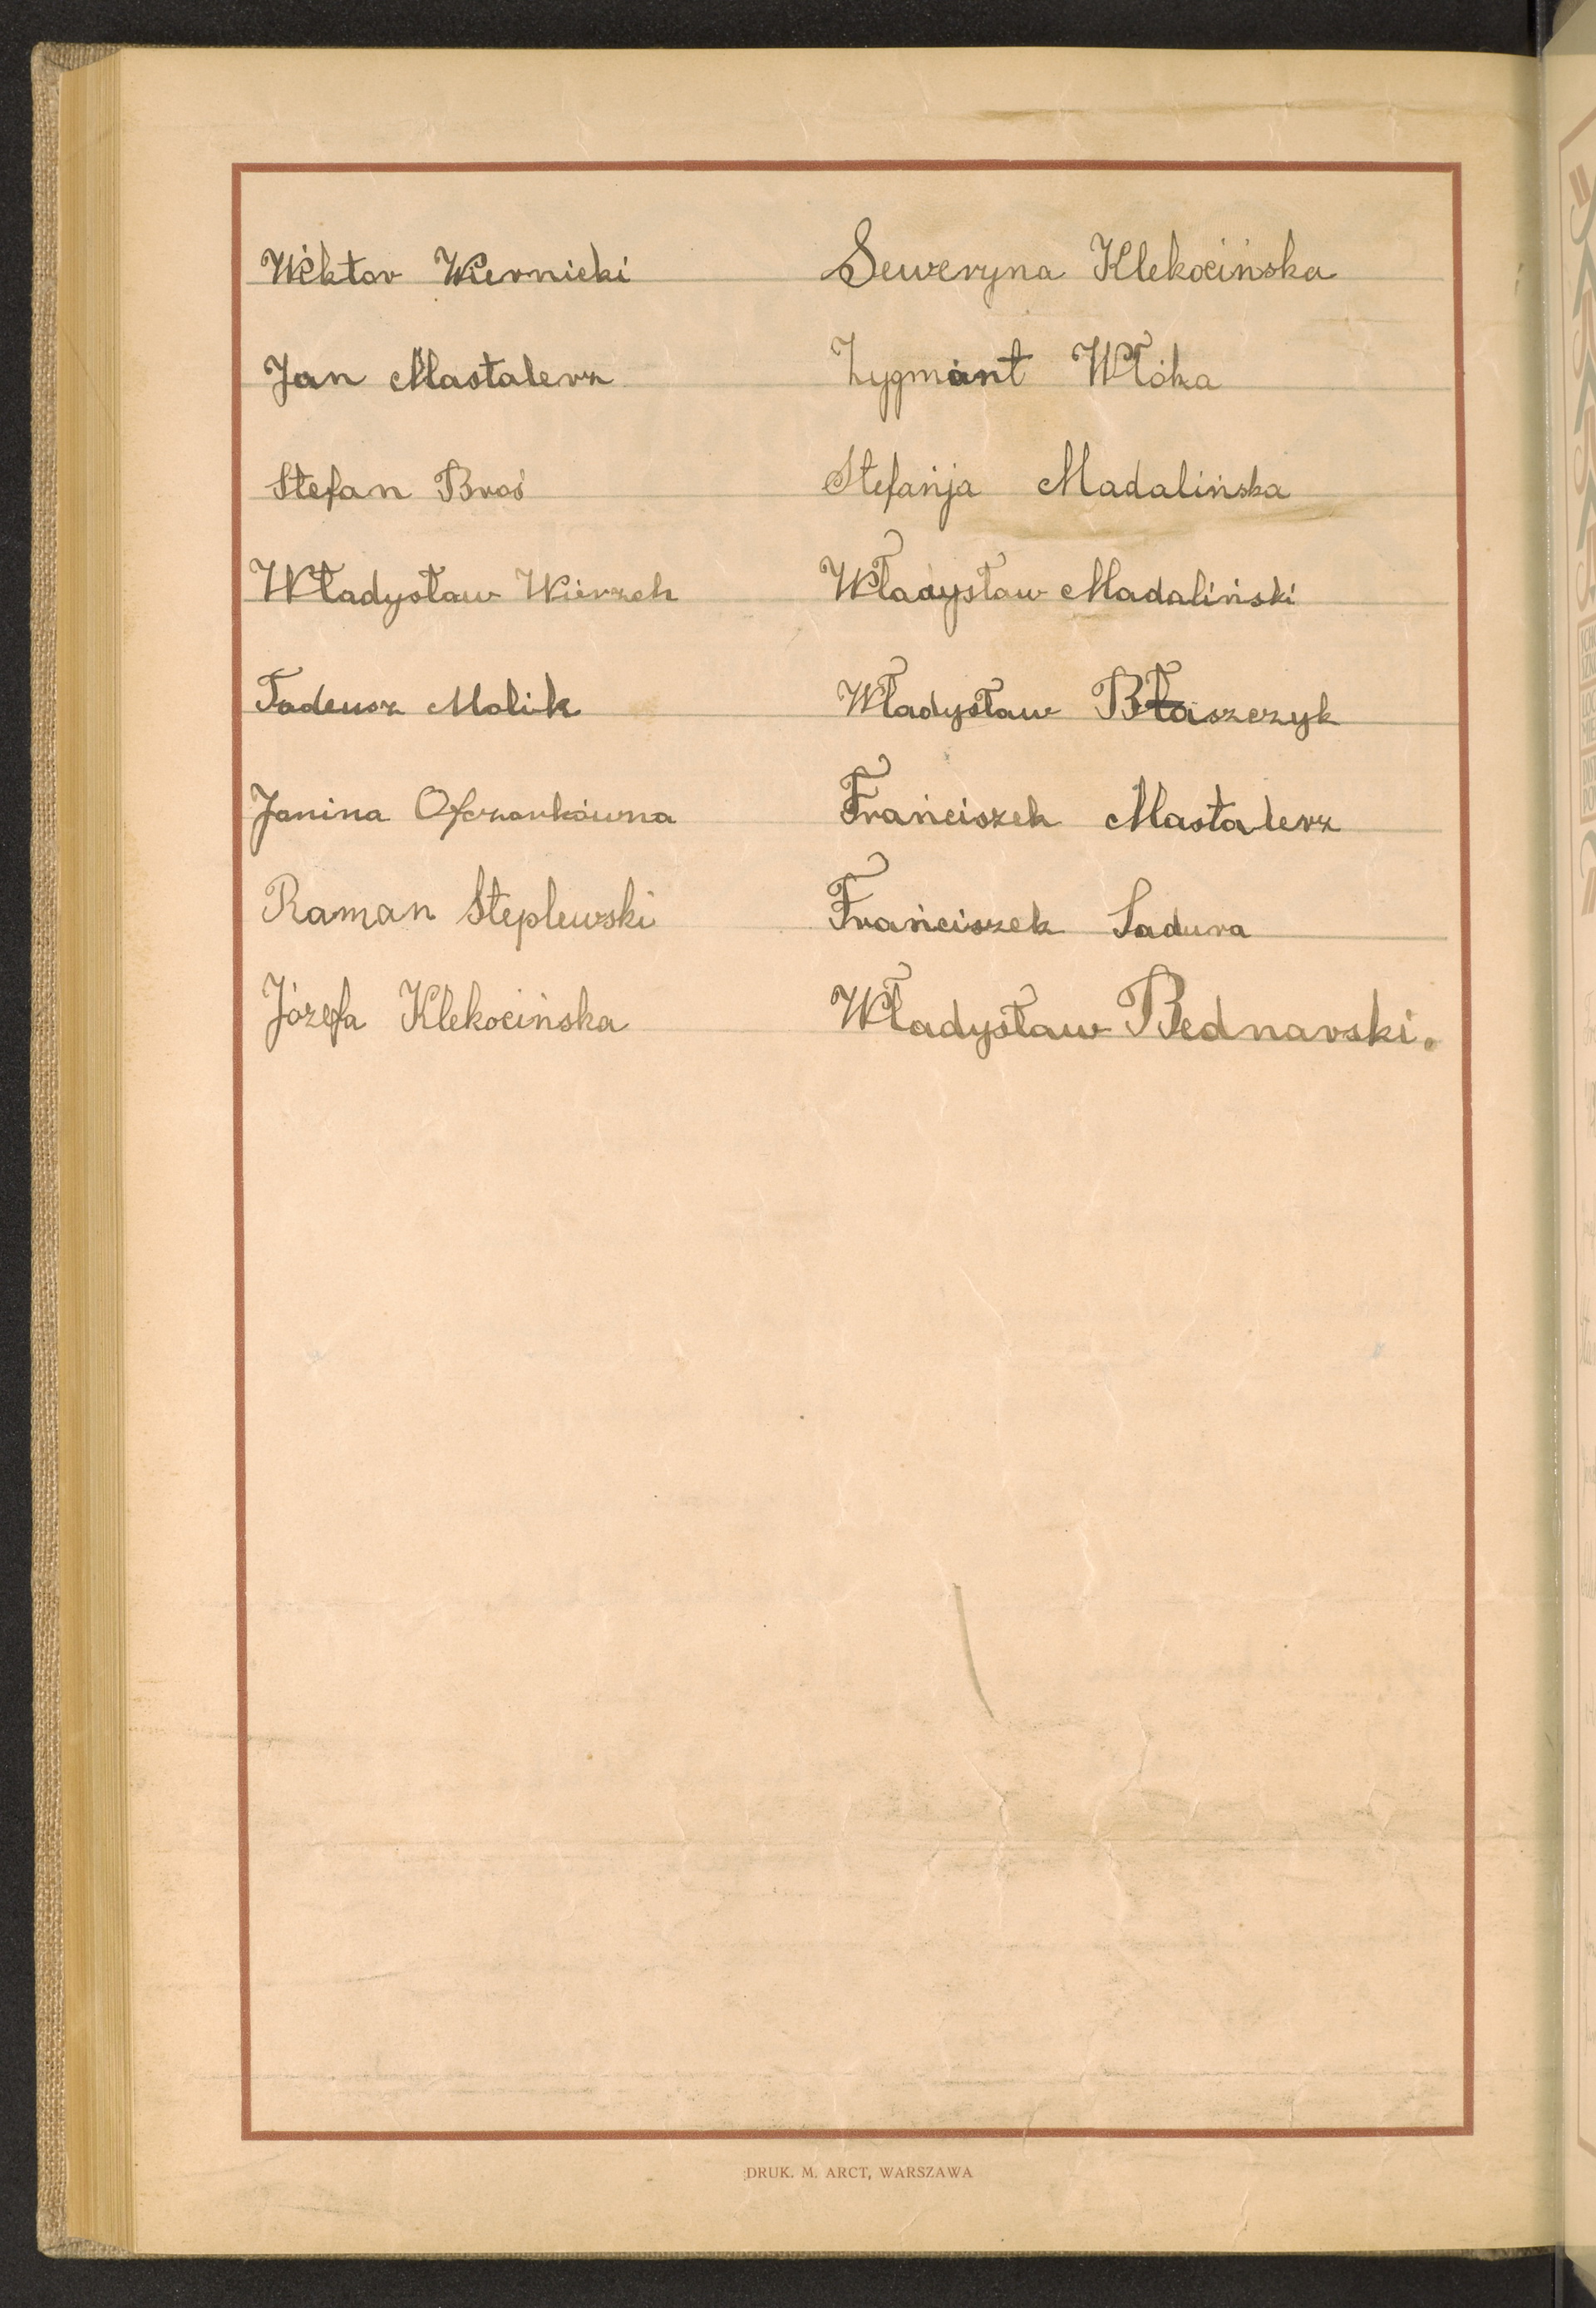 Wiktor Wiernicki
Jan Mastalerz
Stefan Broś
Władysław Wierzch
Tadeusz Molik
Janina Ofczarkówna
Roman Steplewski
Józefa Klekocińska
Seweryna Klekocińska
Zygmunt Włóka
Stefanja Madalińska
Władysław Madaliński
Władysław Błaszczyk
Franciszek Mastalerz
Franciszek Sadura
Władysław Bednarski.
DRUK. M. ARCT, WARSZAWA